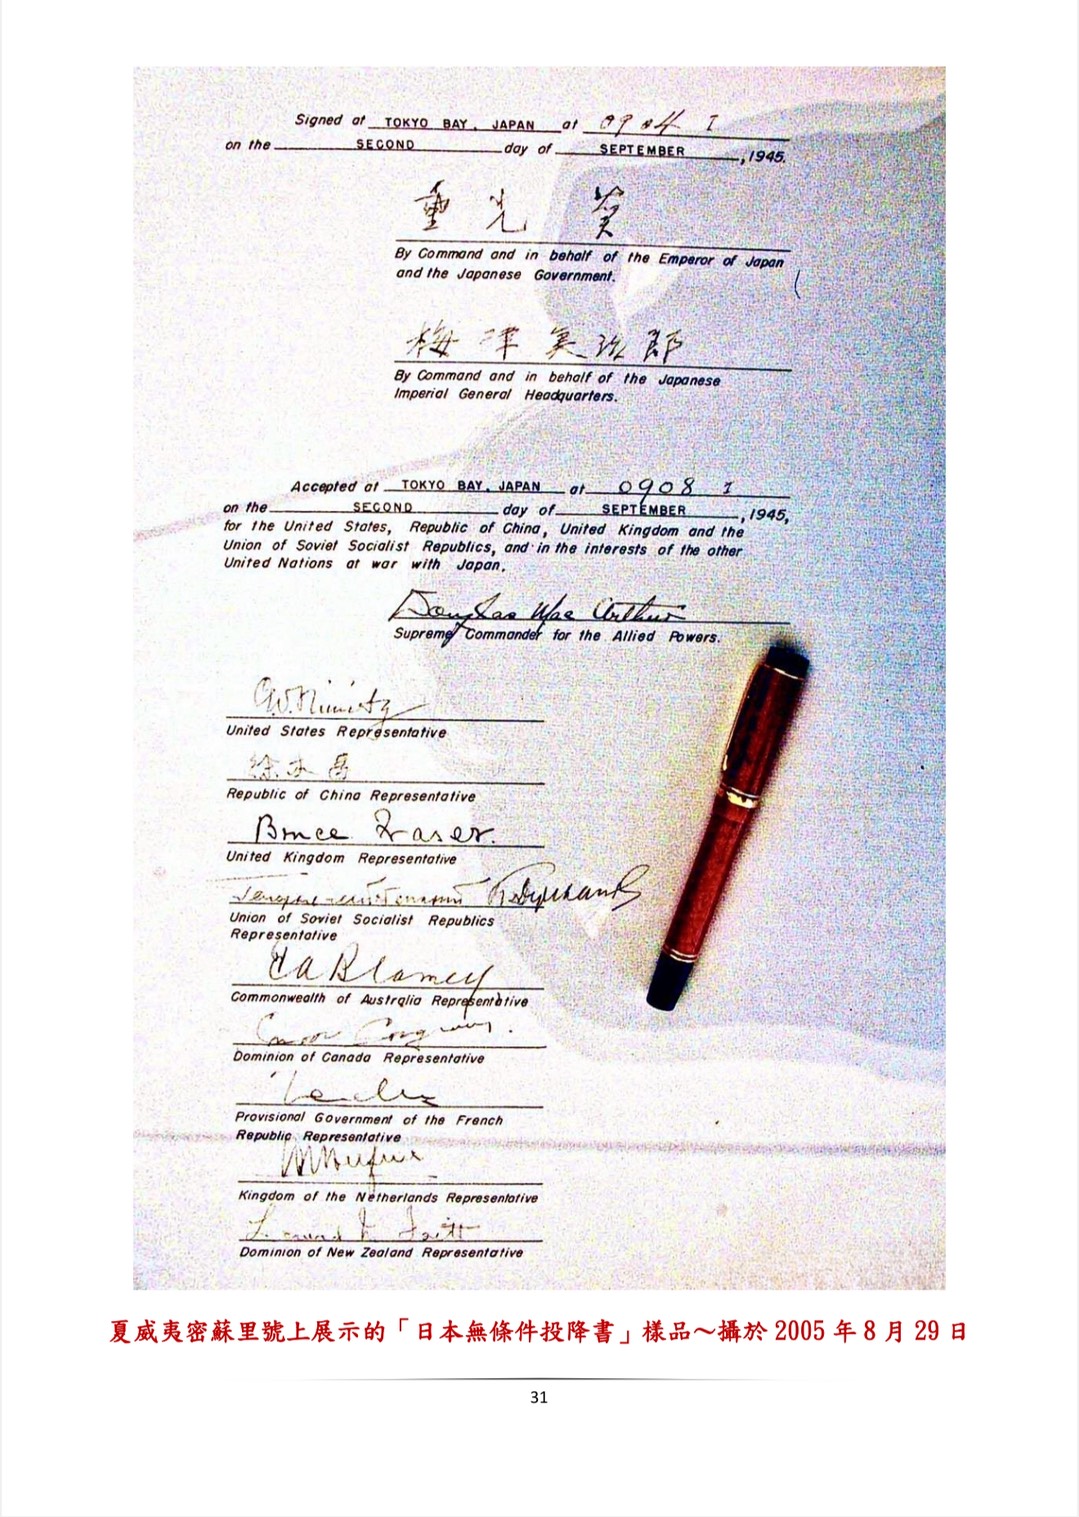 Signed at TOKYO BAY, JAPAN at 0904 I
on the SECOND day of SEPTEMBER, 1945.
重光葵
By Command and in behalf of the Emperor of Japan
and the Japanese Government.
梅津美治郎
By Command and in behalf of the Japanese
Imperial General Headquarters.
Accepted at TOKYO BAY, JAPAN at 0908 I
on the SECOND day of SEPTEMBER, 1945,
for the United States, Republic of China, United Kingdom and the
Union of Soviet Socialist Republics, and in the interests of the other
United Nations at war with Japan.
Douglas MacArthur
Supreme Commander for the Allied Powers.
C.W. Nimitz
United States Representative
徐永昌
Republic of China Representative
Bruce Fraser.
United Kingdom Representative
Union of Soviet Socialist Republics
Representative
T A Blamey
Commonwealth of Australia Representative
Dominion of Canada Representative
Provisional Government of the French
Republic Representative
Kingdom of the Netherlands Representative
Dominion of New Zealand Representative
夏威夷密蘇里號上展示的「日本無條件投降書」樣品～攝於 2005 年 8 月 29 日
31